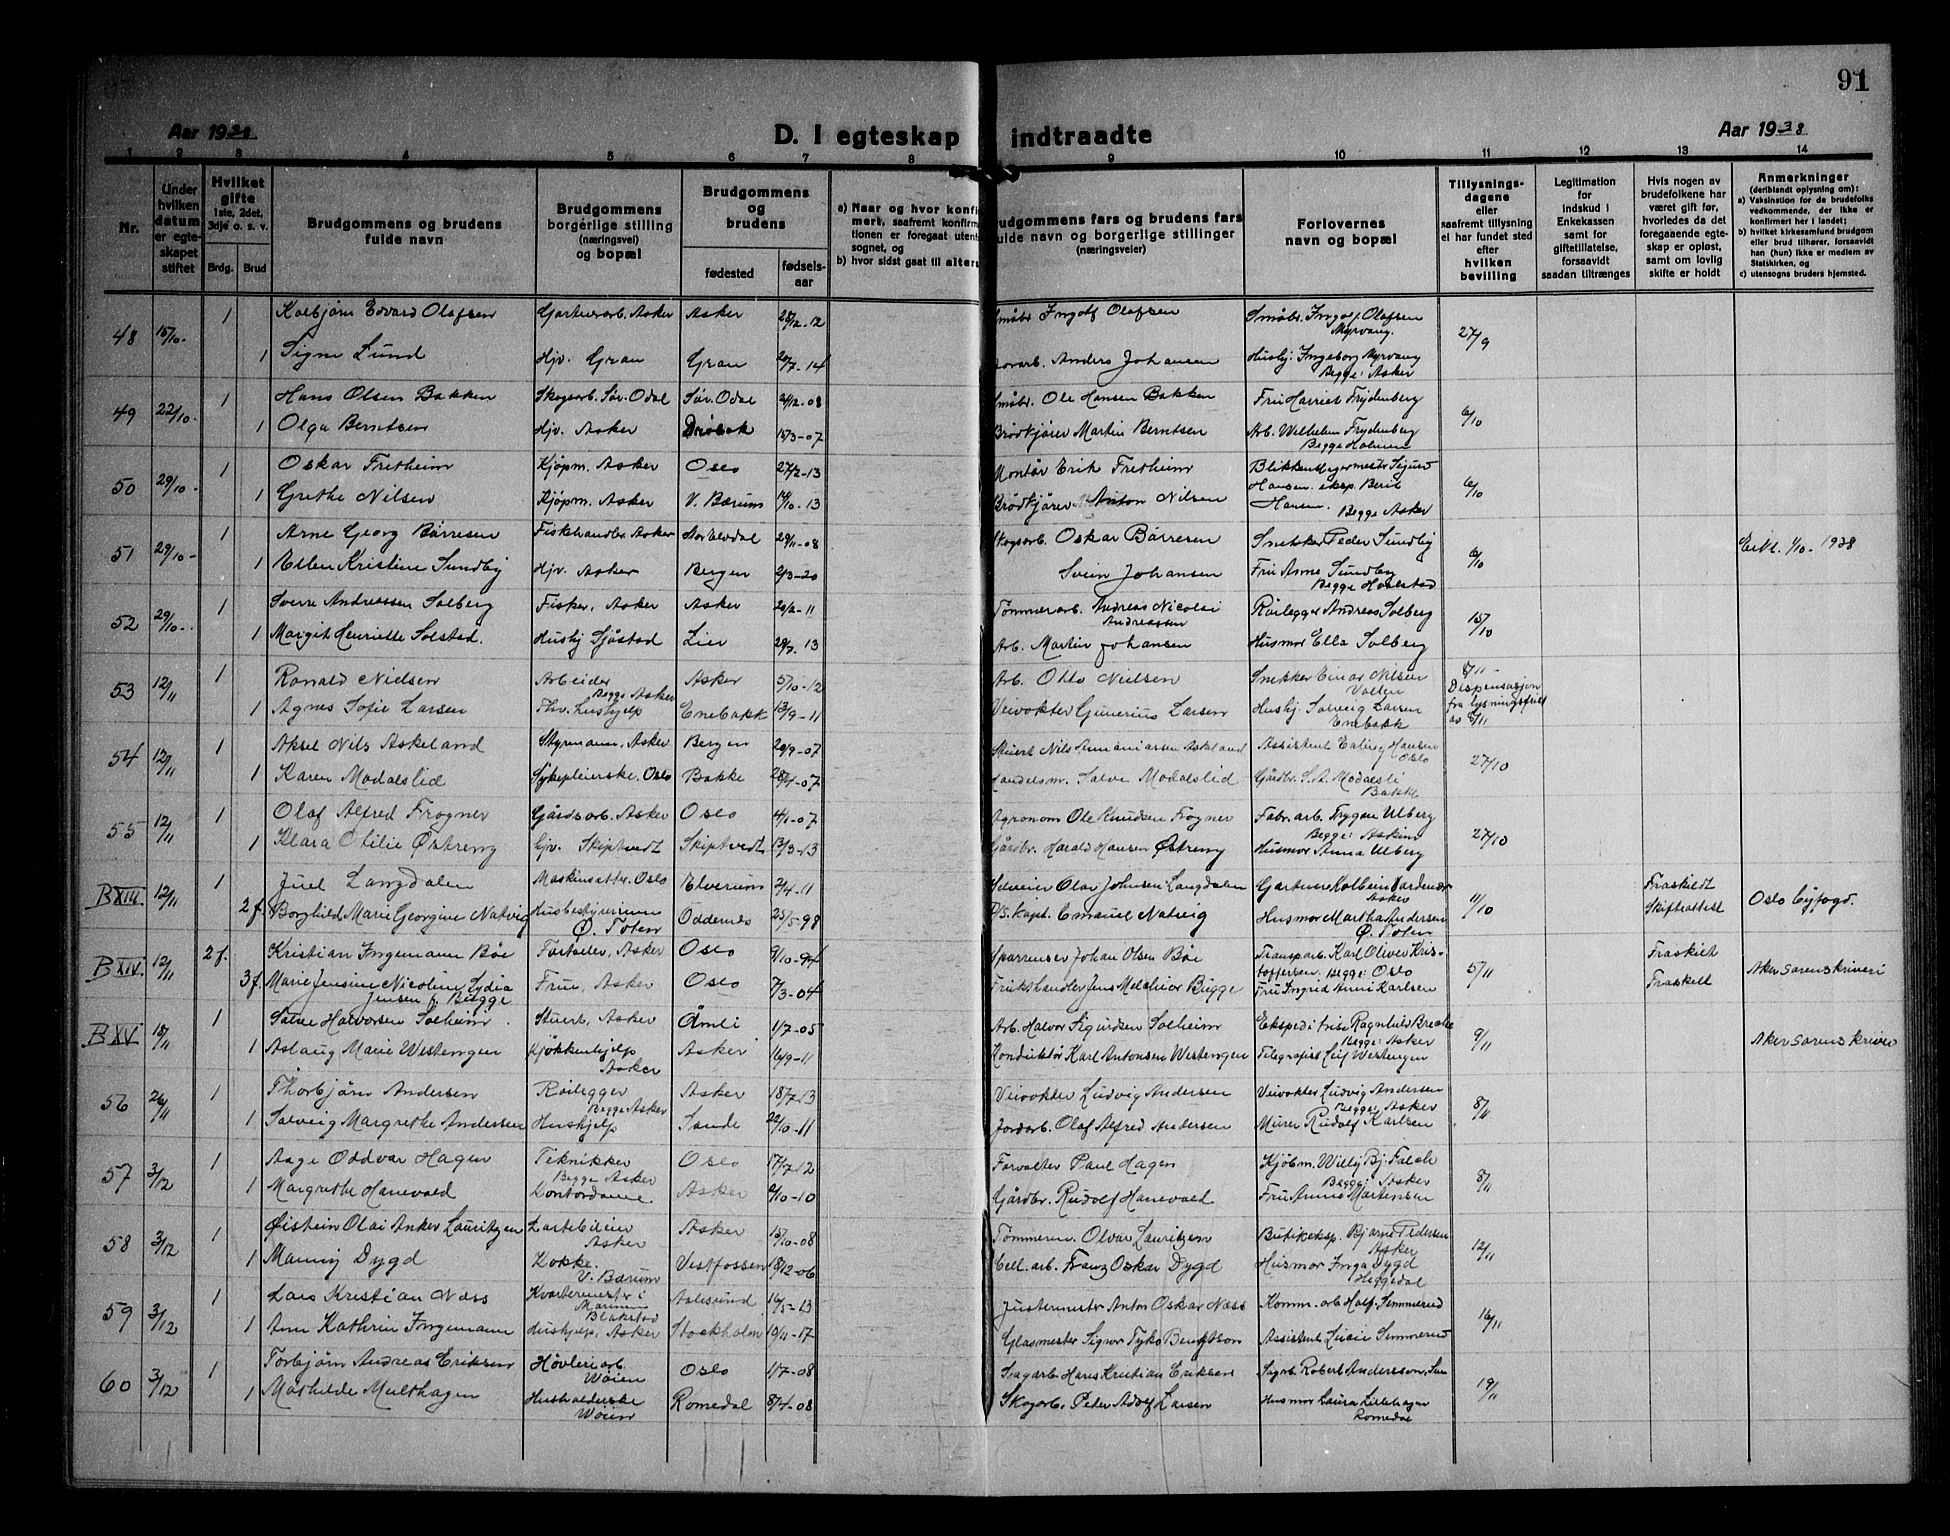 91
Aar 1938
D. I egteskap indtraadte
Aar 1938
1 2 3 4 5 6 7 8 9 10 11 12 13 14
Nr.
Under hvilken datum er egte-skapet stiftet
Hvilket gifte 1ste, 2det, 3dje o. s. v.
Brdg. Brud
Brudgommens og brudens fulde navn
Brudgommens borgerlige stilling (næringsvei) og bopæl
Brudgommens og brudens
fødested
fødsels-aar
a) Naar og hvor konfi
merk, saafremt konfirm
tionen er foregaat utent
sognet, og
b) hvor sidst gaat til alters
udgommens fars og brudens fars
ulde navn og borgerlige stillinger
(næringsveier)
Forlovernes navn og bopæl
Tillysnings-dagene eller saafremt tillysning ei har fundet sted efter hvilken bevilling
Legitimation for indskud i Enkekassen samt for giftetillatelse, forsaavidt saadan tiltrænges
Hvis nogen av brudefolkene har været gift før, hvorledes da det foregaaende egte-skap er opløst, samt om lovlig skifte er holdt
Anmerkninger
(deriblandt oplysning om):
a) Vaksination for de brudefolks vedkommende, der ikke er konfirmert her i landet;
b) hvilket kirkesamfund brudgom eller brud tilhører, forsaavidt han (hun) ikke er medlem av Statskirken, og
c) utensogns bruders hjemsted.
48 15/10- 1 Kolbjørn Edvard Olafsen Gartnerarb. Asker Asker 28/12-12 Småbr. Ingolf Olafsen Småbr. Ingolf Olafsen Myrvang. 27/9
1 Signe Lund Hjv. Gran Gran 20/7-14 Anders Johansen Hushj. Ingeborg Myrvang Begge: Asker
49 22/10- 1 Hans Olsen Bakken Skogsarb. Sør. Odal Sør. Odal 24/12-08 Småbr. Ole Hansen Bakken Fru Harriet Frydenberg 6/10
1 Olga Berntsen Hjv. Asker Drøbak 15/3-07 Brødkjører Martin Berntsen Arb. Wilhelm Frydenberg Begge Holmen
50 29/10- 1 Oskar Fretheim Kjøpm. Asker Oslo 27/2-13 Montør Erik Fretheim Blikkenslagermester Sigurd 6/10
1 Grethe Nilsen Kjøpm. Asker V. Bærum 14/10-13 Brødkjører Anton Nilsen Hansen. eksp. Berit Hansen. Begge Asker
51 29/10- 1 Arne Georg Børresen Fiskehandler Asker 29/11-08 Skogsarb. Oskar Børresen Snekker Peder Sundby 6/10 1/10-1938
1 Ellen Kristine Sundby Hjv. Asker Bergen 2/3-20 Svein Johansen Fru Arne Sundby Begge
52 29/10- 1 Sverre Andreassen Solberg Fisker, Asker Asker 20/2-11 Tømmerarb. Andreas Nicolai Andreassen Rørlegger Andreas Solberg 15/10
1 Margit Henriette Solstad. Hushj Sjåstad Lier 29/7.13 Arb. Martin Johansen Husmor Ella Solberg
53 12/11 1 Ronald Nielsen Arbeider Begge Asker Asker 5/10-12 Arb. Otto Nielsen Snekker Einar Nilsen Vollen 8/11- Dispensasjon fra lysningsfrist av 8/11
1 Agnes Sofie Larsen Thv. hushjelp Enebakk 13/9-11 Veivokter Gunerius Larsen Hushj. Solveig Larsen Enebakk
54 12/11 1 Aksel Nils Askeland Styrmann. Asker Bergen 20/9-07 Stuert Nils Amaniassen Askeland Assistent Hansen Oslo 27/10
1 Karen Modalslid Sykepleierske. Oslo Bakke 28/4-07 Handelsm. Salve Modalslid Gårdbr. S. A. Modalsli Bakke
55 12/11 1 Olaf Alfred Frogner Gårdsarb. Asker Oslo 4/1-07 Agronom Ole Knudsen Frogner Fabr. arb. Trygve Ulberg 27/10
1 Klara Otilie Østreng Hjv. Skiptvedt Skiptvedt 13/3-13 Gårdbr. Harald Hansen Østreng Begge: Askim Husmor Anna Ulberg
B XIII 12/11 1 Juel Langdalen Maskinsetter. Oslo Elverum 2/4-11 Selveier Olav Johnsen Langdalen Gartner Kolbein Asker 11/10 Fraskildt Oslo byfogd.
2 f. Borghild Marie Georgine Natvig Husbestyrerinne Ø. Toten Oddernes 25/5-98 D/S. kapt. Emanuel Natvig Husmor Martha Andersen Ø. Toten Skifteattest
B XIV. 12/11 2 f. Kristian Ingemann Bøe Forteller, Asker Oslo 9/10-94 Sparrenser Johan Olsen Bøe Transp.arb. Karl Oliver Kris- 5/11 Fraskilt Aker Sorenskriveri
3 f. Marie Jensine Nicoline Lydia Jensen f. Bugge Frue, Asker Oslo 7/3-04 Frukthandler Jens Melchior Bugge toffersen. Begge: Oslo Fru Ingrid Anni Karlsen Fraskilt
B XV 18/11 1 Salve Halvorsen Solheim. Stuert, Asker Åmli 1/7-05 Arb. Halvor Sigurdsen Solheim Ekspeditrise Ragnhild Brekke 9/11 Aker Sorenskriver
1 Aslaug Marie Westengen Kjøkkenhjelp Asker Asker 16/9-11 Konduktør Karl Antonsen Westengen Begge: Asker Telegrafist Leif Westengen
56 26/11 1 Thorbjørn Andersen Rørlegger Begge Asker Asker 18/7-13 Veivokter Ludvig Andersen Veivokter Ludvig Andersen 8/11
1 Solveig Margrethe Andersen Hushjelp Sande 22/10-11 Jordarb. Olaf Alfred Andersen Begge: Asker Murer Rudolf Karlsen
57 3/12 1 Aage Oddvar Hagen Teknikker Oslo 17/7-12 Forvalter Paul Hagen Kjøbm. Willy Bj. Falch 8/11
1 Margrethe Hanevold Begge Asker Kontordame Asker 2/10-10 Gårdbr. Rudolf Hanevold Begge: Asker Fru Anna Martensen
58 3/12 1 Øistein Olai Anker Lauritzen Lastebileier Asker Asker 15/10-08 Tømmerm. Olvar Lauritzen Butikeksp. Bjarne Pedersen Asker 12/11
1 Manny Dygd Kokke. V. Bærum Vestfossen 18/12-06 Cell. arb. Franz Oskar Dygd Husmor Inga Dygd Heggedal
59 3/12 1 Lars Kristian Næss Kvartermester i Marinen Blakstad Aalesund 16/5-13 Justermester Anton Oskar Næss Komm. arb Half. Simmerud 16/11
1 Ann Kathrin Ingemann Hushjelp, Asker Stockholm 10/11-17 Glasmester Signor Tyko Bengtson Assistent Lucie Simmerud
60 3/12 1 Torbjørn Andreas Eriksen Høvleriarb. Wøien Oslo 1/7-08 Sagarb Hans Kristian Eriksen Sagarb. Robert Anderssen, 19/11
1 Mathilde Multhagen Husholderske Wøien Romedal 8/4-08 Skogarb. Peter Adolf Larsen Husmor Laura Lillehagen Romedal